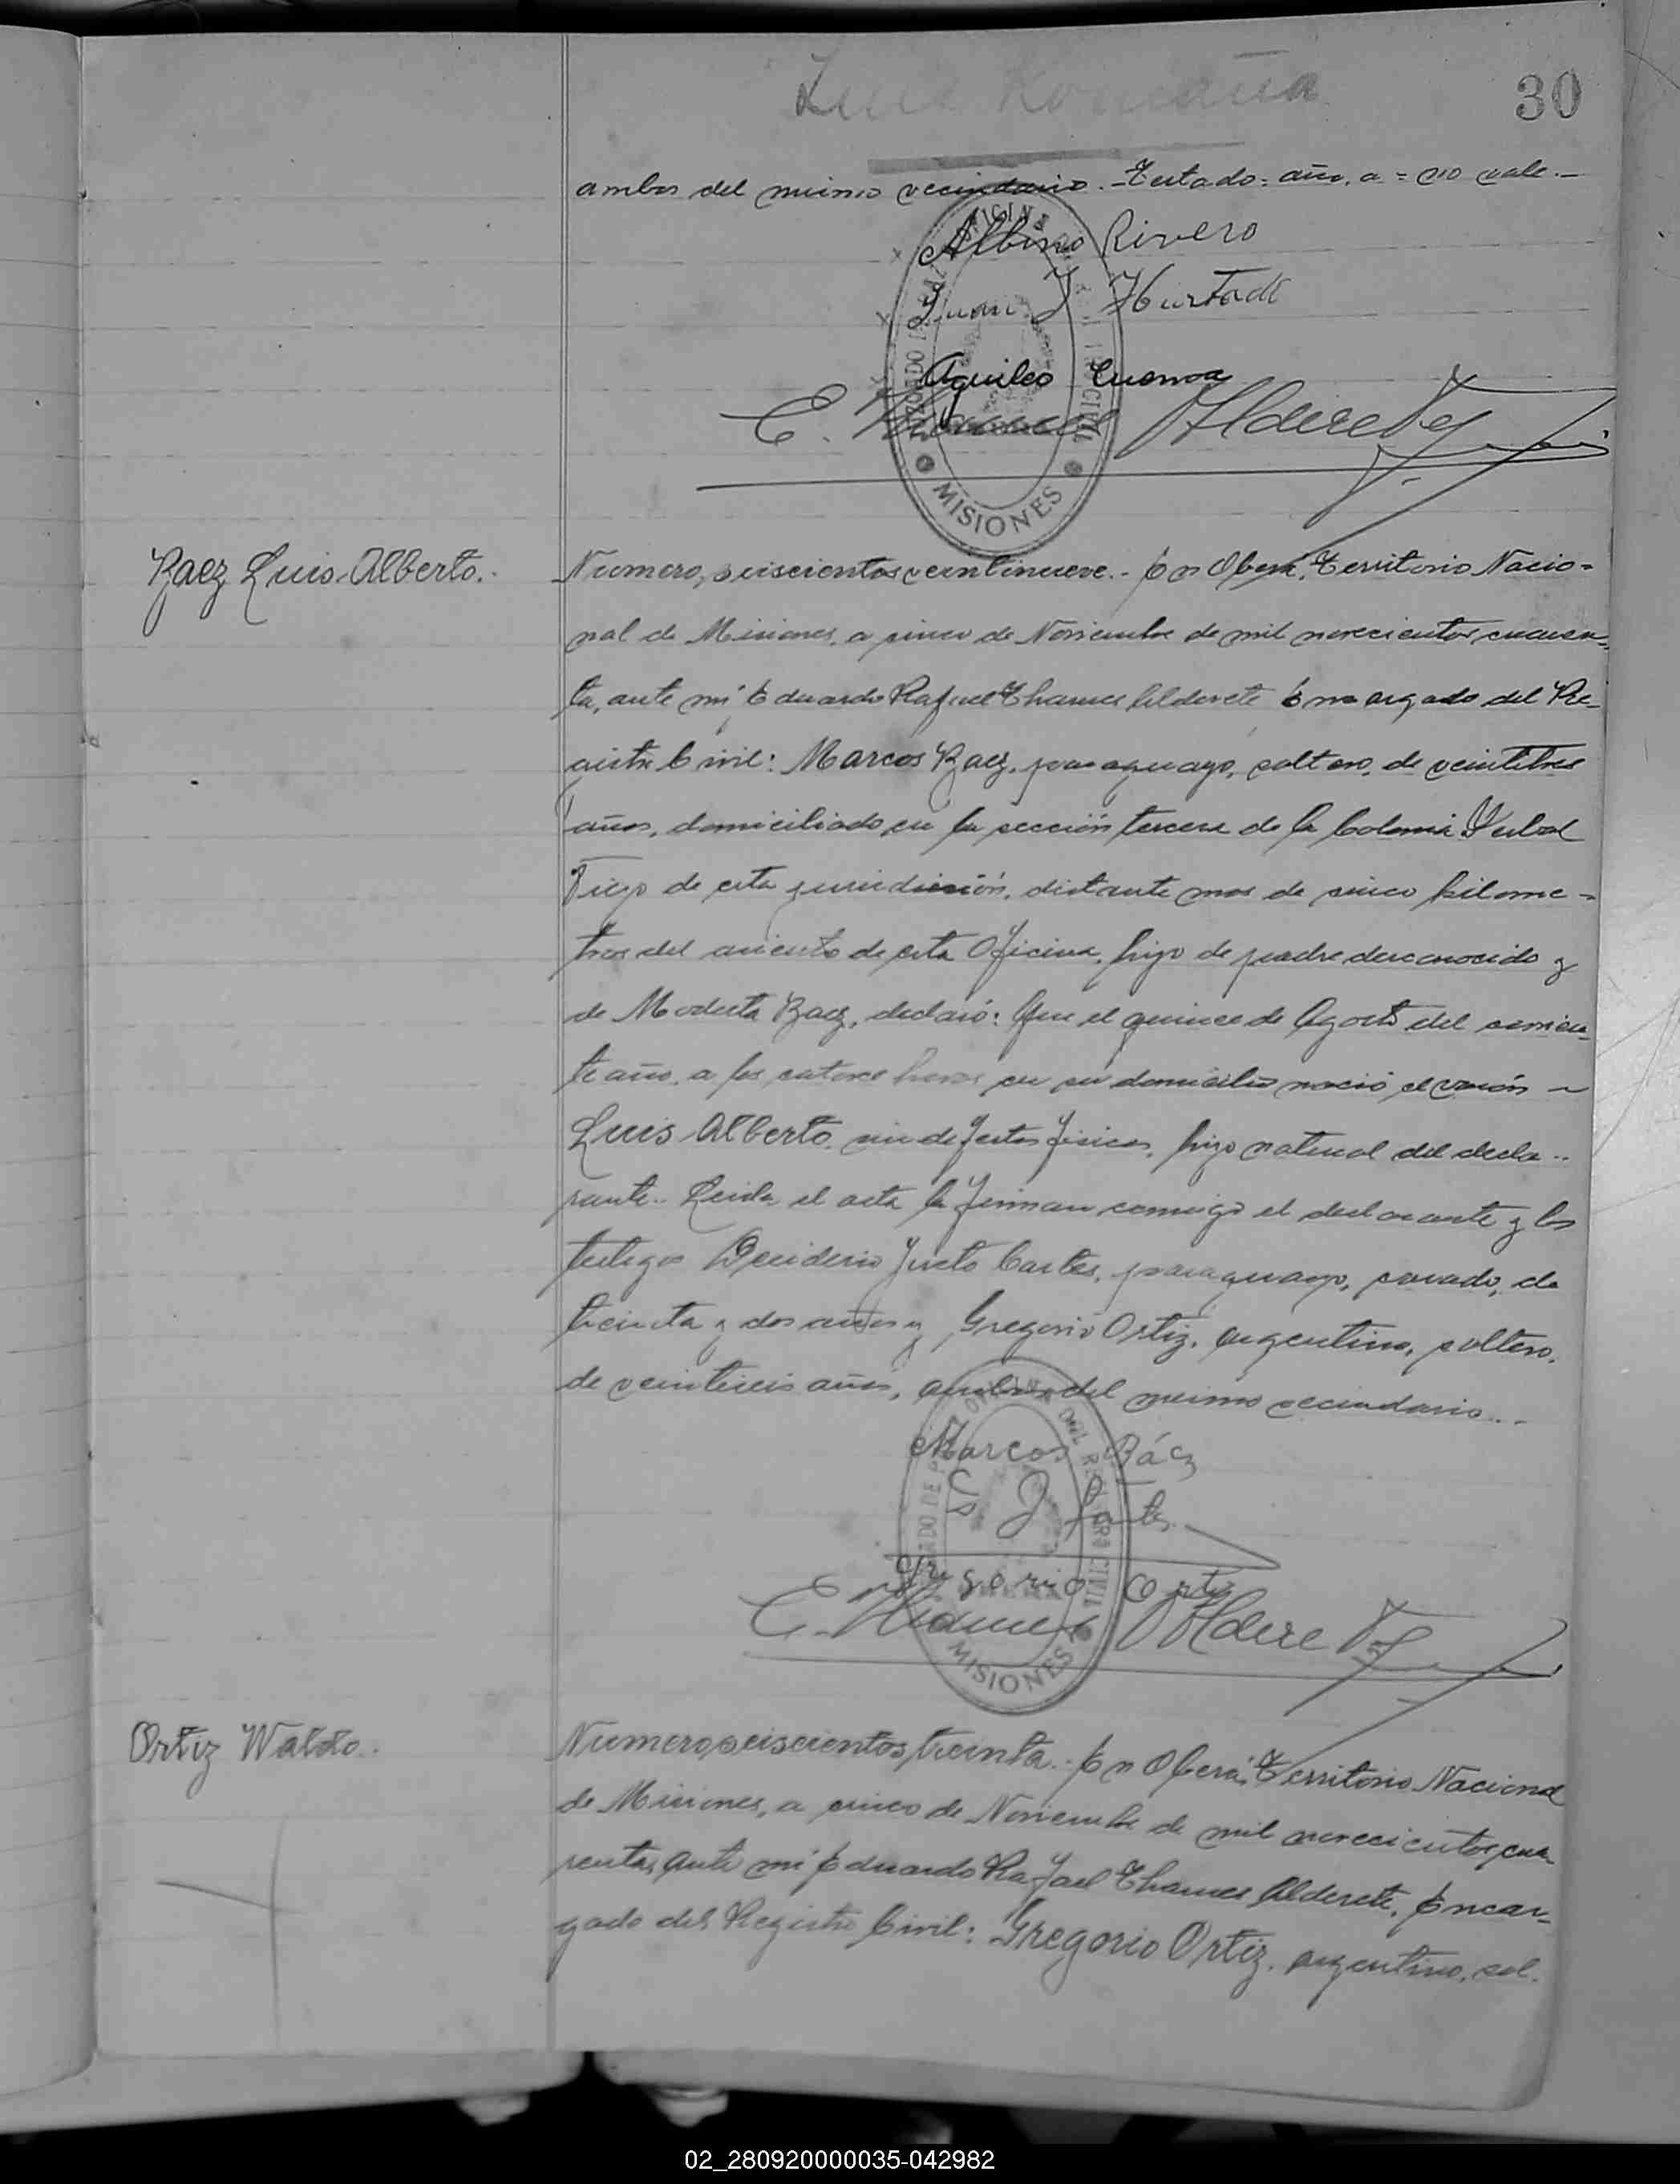 30
ambos del mismo vecindario.- Testado: año, a = no vale.-
Albino Rivero
Juan J Hurtado
Aquileo Cuenca
E. Thames Alderete
MISIONES
Baez Luis Alberto.-
Numero, seiscientos veintinueve.- En Oberá, Territorio Nacio=
nal de Misiones, a cinco de Noviembre de mil novecientos cuaren=
ta, ante mi Eduardo Rafael Thames Alderete Encargado del Re=
gistro Civil: Marcos Baez, paraguayo, soltero, de veintitres
años, domiciliado en la sección tercera de la Colonia Yerbal
Viejo de esta jurisdicción, distante mas de cinco kilome=
tros del asiento de esta Oficina, hijo de padre desconocido y
de Modesta Baez, declaró: Que el quince de Agosto del corrien=
te año, a las catorce horas en su domicilio nació el varón ~
Luis Alberto, sin defectos fisicos, hijo natural del decla..
rante.. Leida el acta la firman conmigo el declarante y los
testigos Desiderio Justo Cartes, paraguayo, casado, de
treinta y dos años y Gregorio Ortiz, argentino, soltero,
de veintiseis años, ambos del mismo vecindario...
Marcos Báez
J
Gregorio Ortiz
E. Thames Alderete
MISIONES
Ortiz Waldo.
Numero, seiscientos, treinta.- En Oberá, Territorio Nacional
de Misiones, a cinco de Noviembre de mil novecientos cua-
renta, ante mi Eduardo Rafael Thames Alderete, Encar=
gado del Registro Civil: Gregorio Ortiz, argentino, sol.
02_280920000035-042982